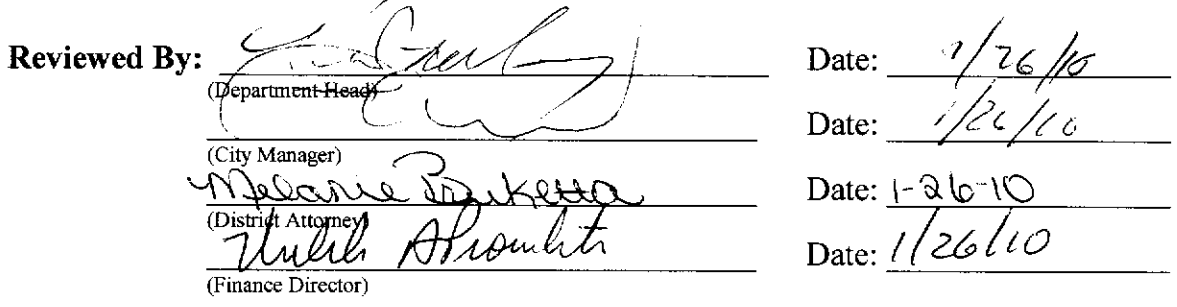 Reviewed By: Date: 1/26/10
(Department Head)
Date: 1/26/10
(City Manager)
Melanie Date: 1-26-10
(District Attorney)
Date: 1/26/10
(Finance Director)